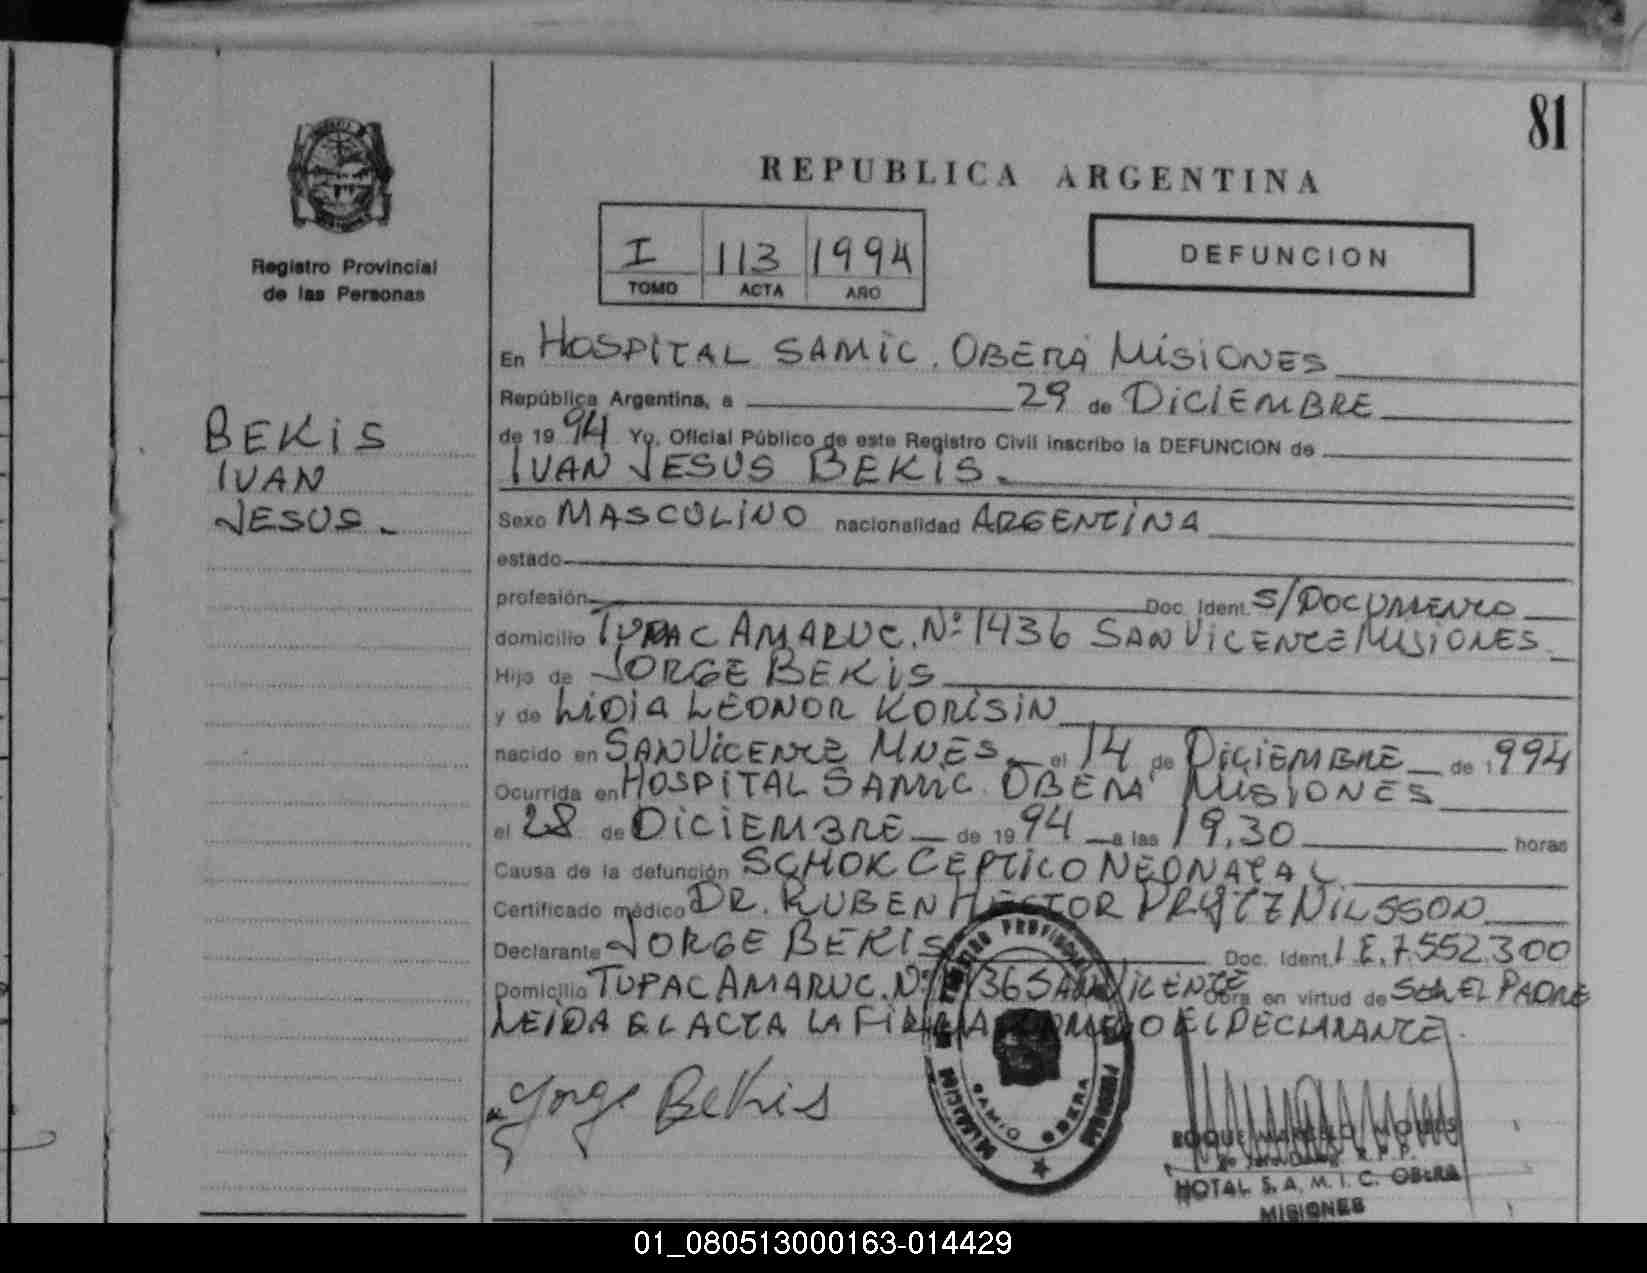 81
REPUBLICA ARGENTINA
Registro Provincial
de las Personas
I 113 1994
TOMO ACTA AÑO
DEFUNCION
BEKIS
IVAN
JESUS.
En HOSPITAL SAMIC. OBERA MISIONES
República Argentina, a 29 de DICIEMBRE
de 1994 Yo, Oficial Público de este Registro Civil inscribo la DEFUNCION de
IVAN JESUS BEKIS.
Sexo MASCULINO nacionalidad ARGENTINA
estado
profesión Doc. Ident. S/DOCUMENTO
domicilio TUPAC AMARUC. Nº 1436 SAN VICENTE MISIONES
Hijo de JORGE BEKIS
y de LIDIA LEONOR KORISIN
nacido en SAN VICENTE MNES. el 14 de DICIEMBRE de 1994
Ocurrida en HOSPITAL SAMIC OBERA MISIONES
el 28 de DICIEMBRE de 1994 a las 19,30 horas
Causa de la defunción SCHOK CEPTICO NEONATAL
Certificado médico DR. RUBEN HECTOR PRYTZ NILSSON
Declarante JORGE BEKIS Doc. Ident. L.E. 7.552.300
Domicilio TUPAC AMARUC. Nº 1436 SAN VICENTE Obra en virtud de SER EL PADRE
LEIDA EL ACTA LA FIRMA EL DECLARANTE.
Jorge Bekis
REGISTRO PROVINCIAL
SAMIC OBERA
MISIONES
HOTAL S.A.M.I.C. OBERA
MISIONES
01_080513000163-014429